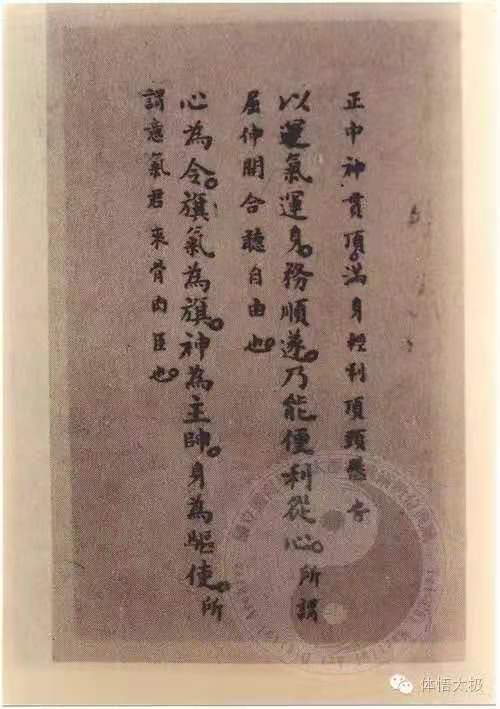 正中神貫頂。滿身輕利頂頭懸
以運氣運身。務順遂。乃能便利從心。所謂
屈伸開合聽自由也。
心為令。旗氣為旗。神為主帥。身為驅使。所
謂意氣君來骨肉臣也。
体悟太极